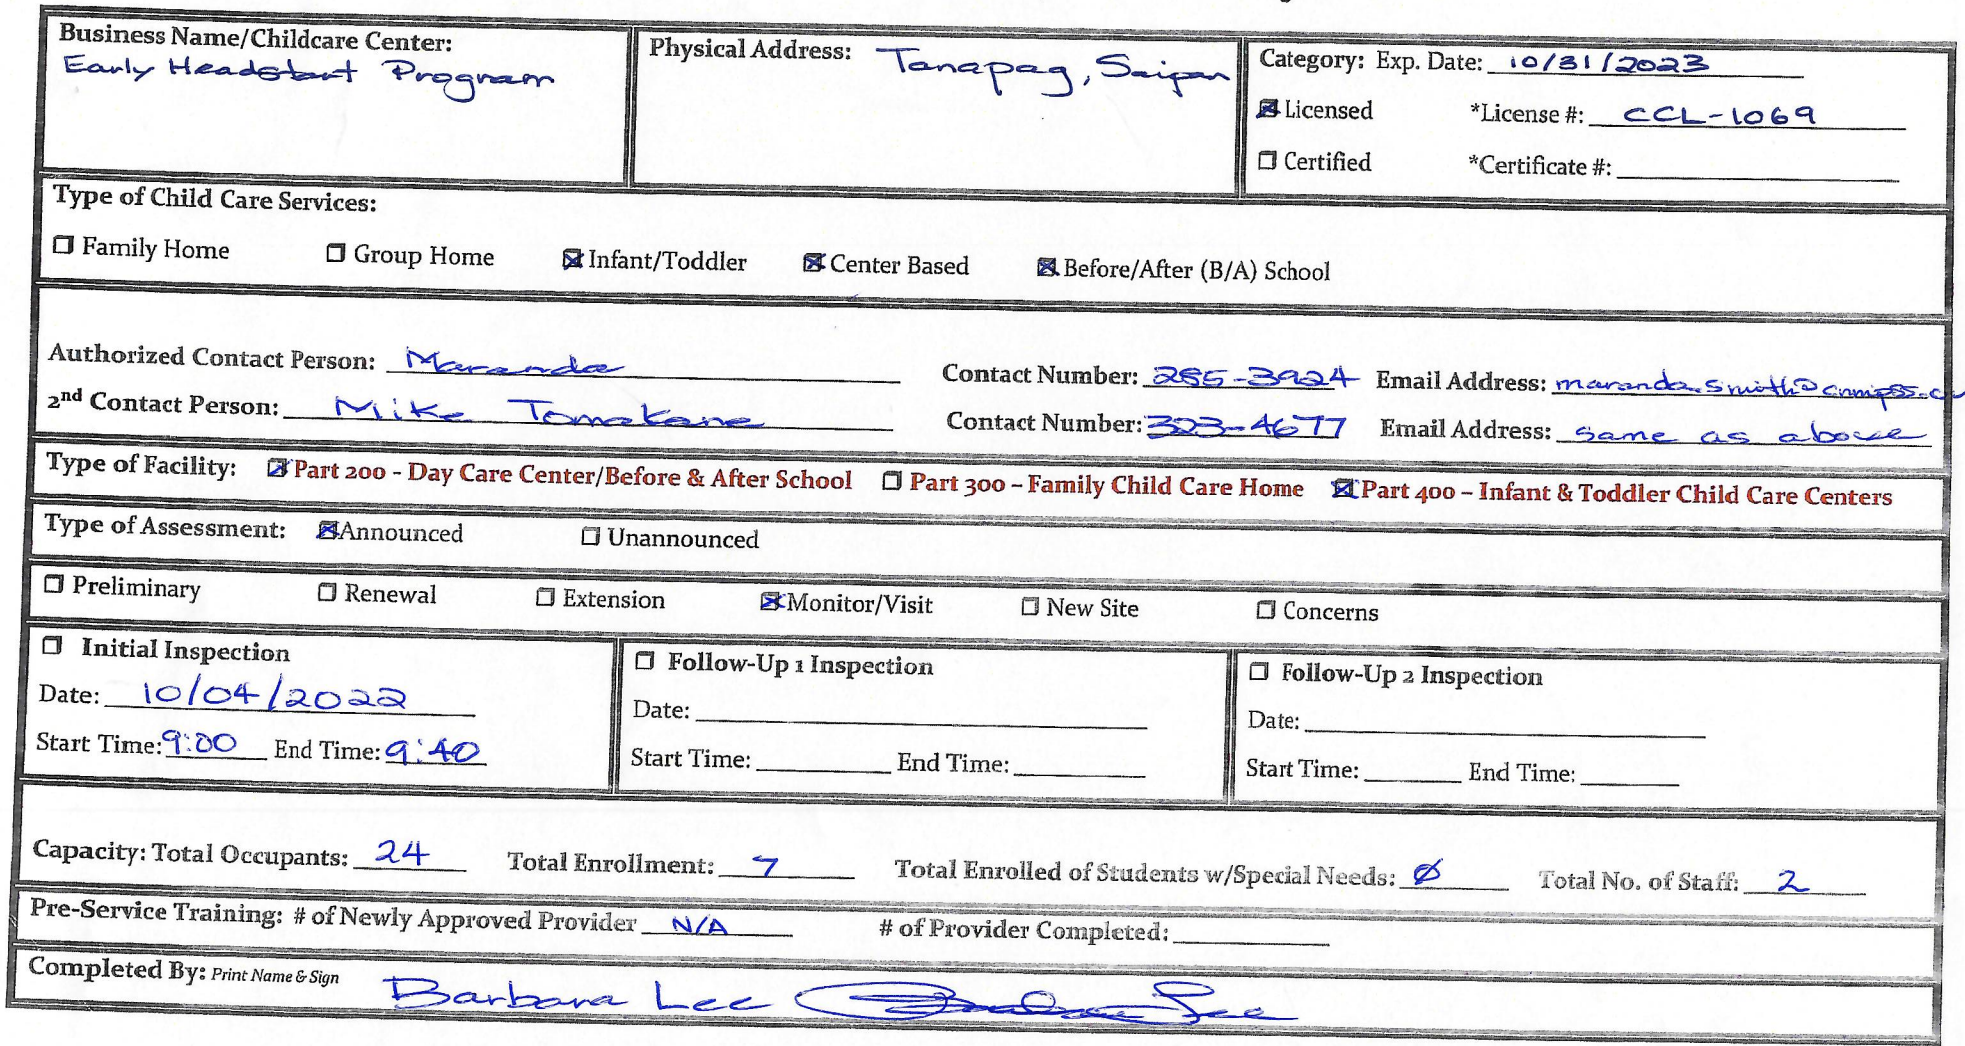 Business Name/Childcare Center:
Early Headstart Program
Physical Address: Tanapag, Saipan
Category: Exp. Date: 10/31/2023
☒ Licensed *License #: CCL-1069
☐ Certified *Certificate #:
Type of Child Care Services:
☐ Family Home ☐ Group Home ☒ Infant/Toddler ☒ Center Based ☒ Before/After (B/A) School
Authorized Contact Person: Maranda Contact Number: 285-3924 Email Address: maranda.smith@cnmipss.
2nd Contact Person: Mike Tomokane Contact Number: 323-4677 Email Address: same as above
Type of Facility: ☒ Part 200 - Day Care Center/Before & After School ☐ Part 300 – Family Child Care Home ☒ Part 400 – Infant & Toddler Child Care Centers
Type of Assessment: ☒ Announced ☐ Unannounced
☐ Preliminary ☐ Renewal ☐ Extension ☒ Monitor/Visit ☐ New Site ☐ Concerns
☐ Initial Inspection
Date: 10/04/2022
Start Time: 9:00 End Time: 9:40
☐ Follow-Up 1 Inspection
Date:
Start Time: End Time:
☐ Follow-Up 2 Inspection
Date:
Start Time: End Time:
Capacity: Total Occupants: 24 Total Enrollment: 7 Total Enrolled of Students w/Special Needs: Ø Total No. of Staff: 2
Pre-Service Training: # of Newly Approved Provider N/A # of Provider Completed:
Completed By: Print Name & Sign Barbara Lee